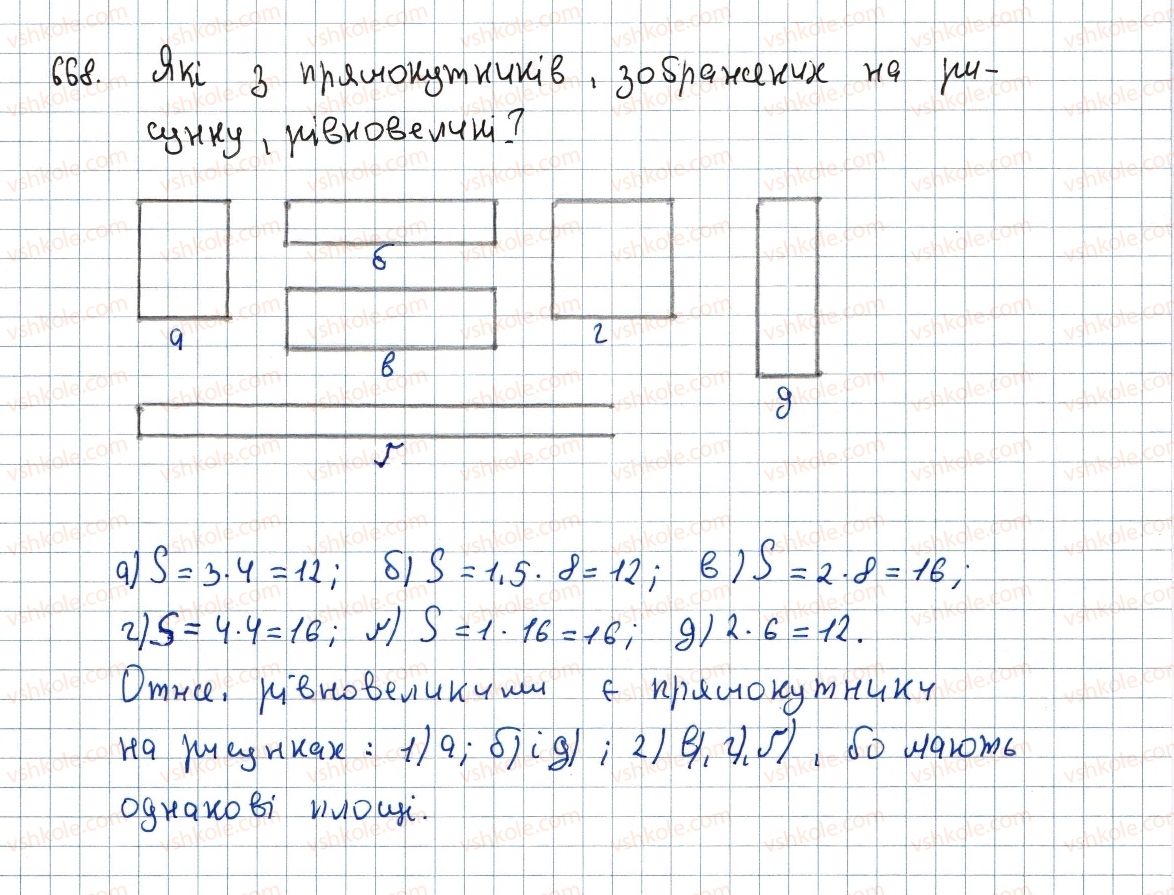 668. Які з прямокутників, зображених на ри-
сунку, рівновеликі?
а
б
в
г
д
ґ
а) S = 3·4 = 12; б) S = 1,5·8 = 12; в) S = 2·8 = 16;
г) S = 4·4 = 16; ґ) S = 1·16 = 16; д) 2·6 = 12.
Отже, рівновеликими є прямокутники
на рисунках: 1) а; б) і д) ; 2) в), г), ґ), бо мають
однакові площі.